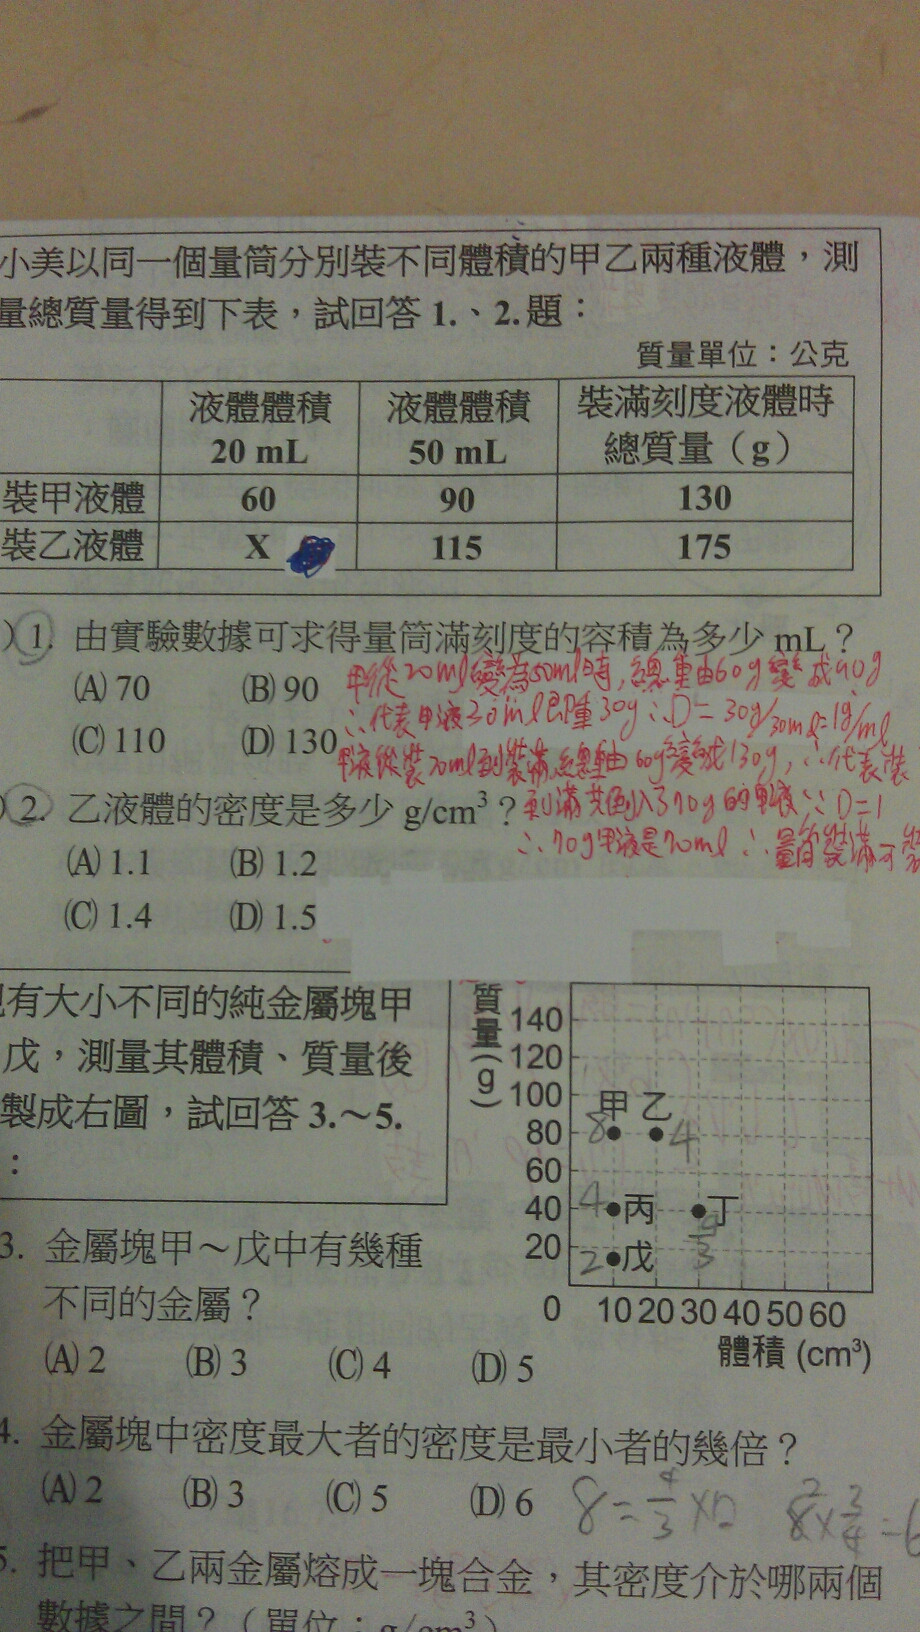 小美以同一個量筒分別裝不同體積的甲乙兩種液體，測
量總質量得到下表，試回答 1.、2.題：
質量單位：公克
液體體積 20 mL 液體體積 50 mL 裝滿刻度液體時總質量（g）
裝甲液體 60 90 130
裝乙液體 X 115 175
) 1. 由實驗數據可求得量筒滿刻度的容積為多少 mL？
(A) 70 (B) 90
(C) 110 (D) 130
甲從20ml變為50ml時，總重由60g變成90g
∴代表甲液30ml即重30g ∴D=30g/30ml=1g/ml
甲液從裝20ml到裝滿,總重由60g變成130g, ∴代表裝
到滿共倒入了70g的甲液 ∵D=1
∴70g甲液是70ml ∴量筒裝滿可裝
) 2. 乙液體的密度是多少 g/cm³？
(A) 1.1 (B) 1.2
(C) 1.4 (D) 1.5
有大小不同的純金屬塊甲
戊，測量其體積、質量後
製成右圖，試回答 3.～5.
：
質量(g)
140
120
100
80
60
40
20
0 10 20 30 40 50 60
體積 (cm³)
甲 乙
8 4
4 丙 丁
4/3
2 戊
3. 金屬塊甲～戊中有幾種
不同的金屬？
(A) 2 (B) 3 (C) 4 (D) 5
4. 金屬塊中密度最大者的密度是最小者的幾倍？
(A) 2 (B) 3 (C) 5 (D) 6
8=4/3×□ 8×3/4=6
5. 把甲、乙兩金屬熔成一塊合金，其密度介於哪兩個
數據之間？（單位：g/cm³）